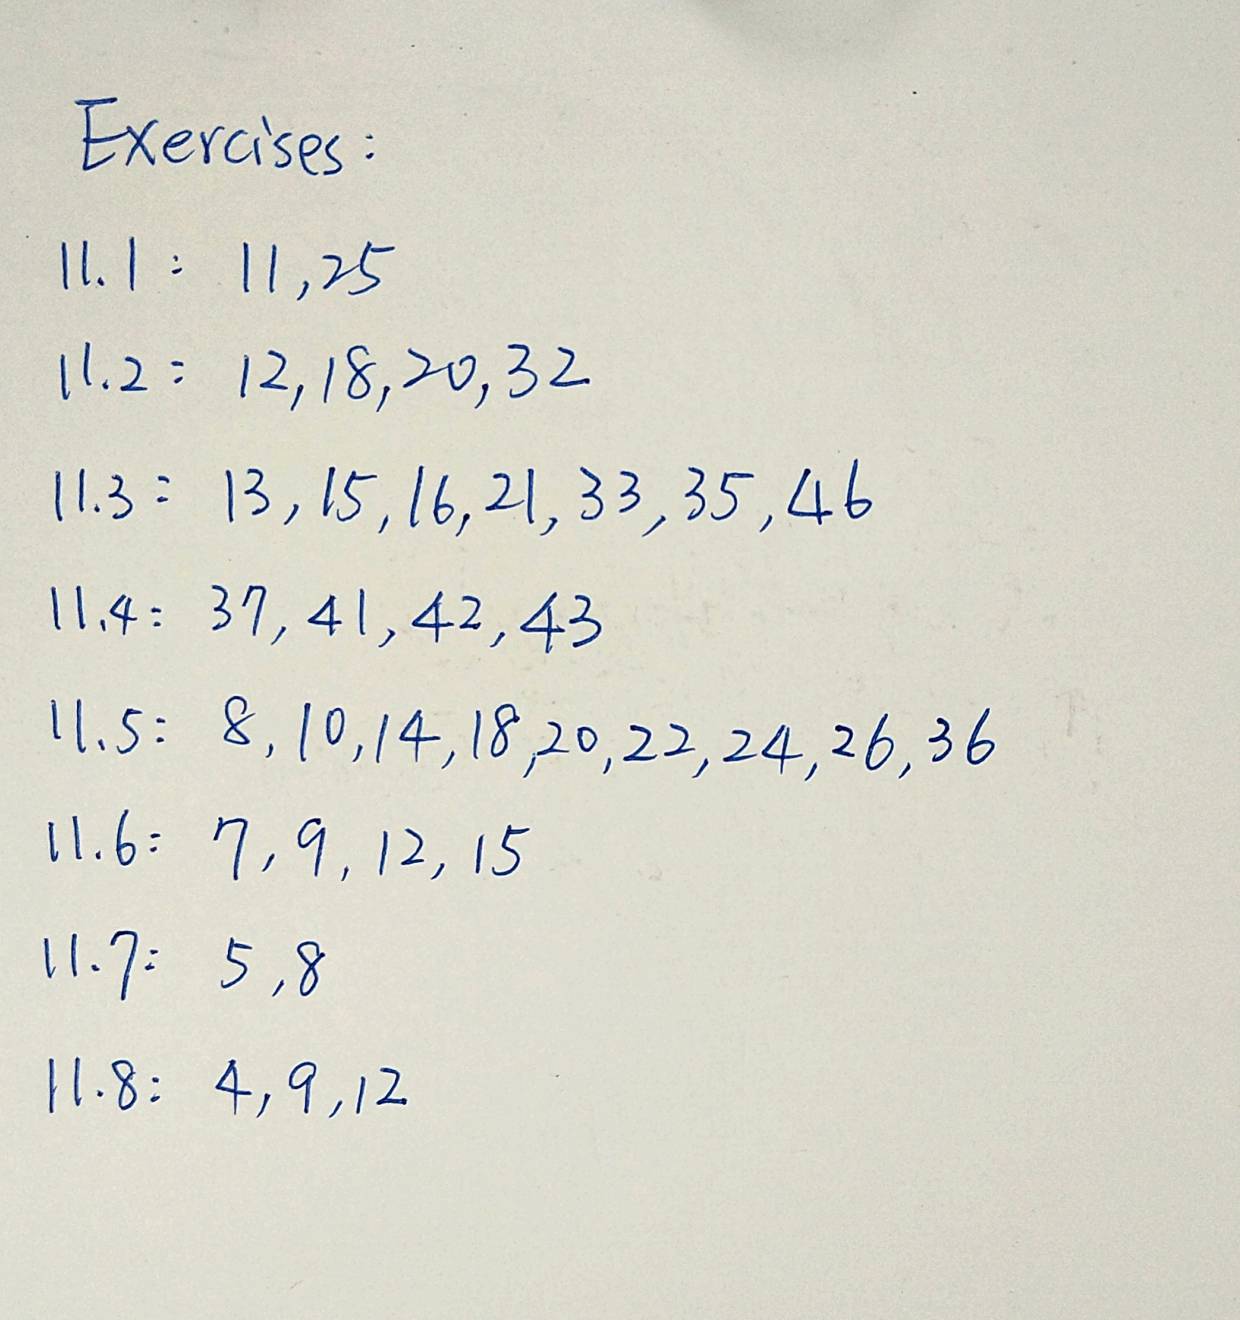 Exercises:
11.1: 11,25
11.2: 12,18,20,32
11.3: 13,15,16,21,33,35,46
11.4: 37,41,42,43
11.5: 8,10,14,18,20,22,24,26,36
11.6: 7,9,12,15
11.7: 5,8
11.8: 4,9,12